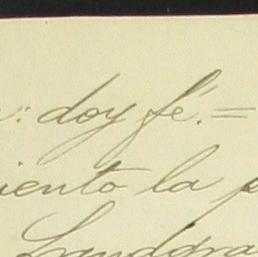 : doy fé.=
iento la p